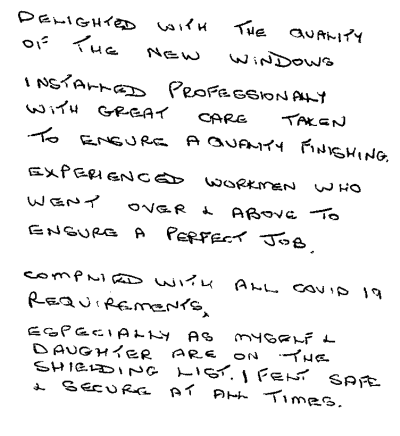 DELIGHTED WITH THE QUALITY
OF THE NEW WINDOWS
INSTALLED PROFESSIONALLY
WITH GREAT CARE TAKEN
TO ENSURE A QUALITY FINISHING.
EXPERIENCED WORKMEN WHO
WENT OVER & ABOVE TO
ENSURE A PERFECT JOB.
COMPLIED WITH ALL COVID 19
REQUIREMENTS,
ESPECIALLY AS MYSELF &
DAUGHTER ARE ON THE
SHIELDING LIST. I FELT SAFE
& SECURE AT ALL TIMES.